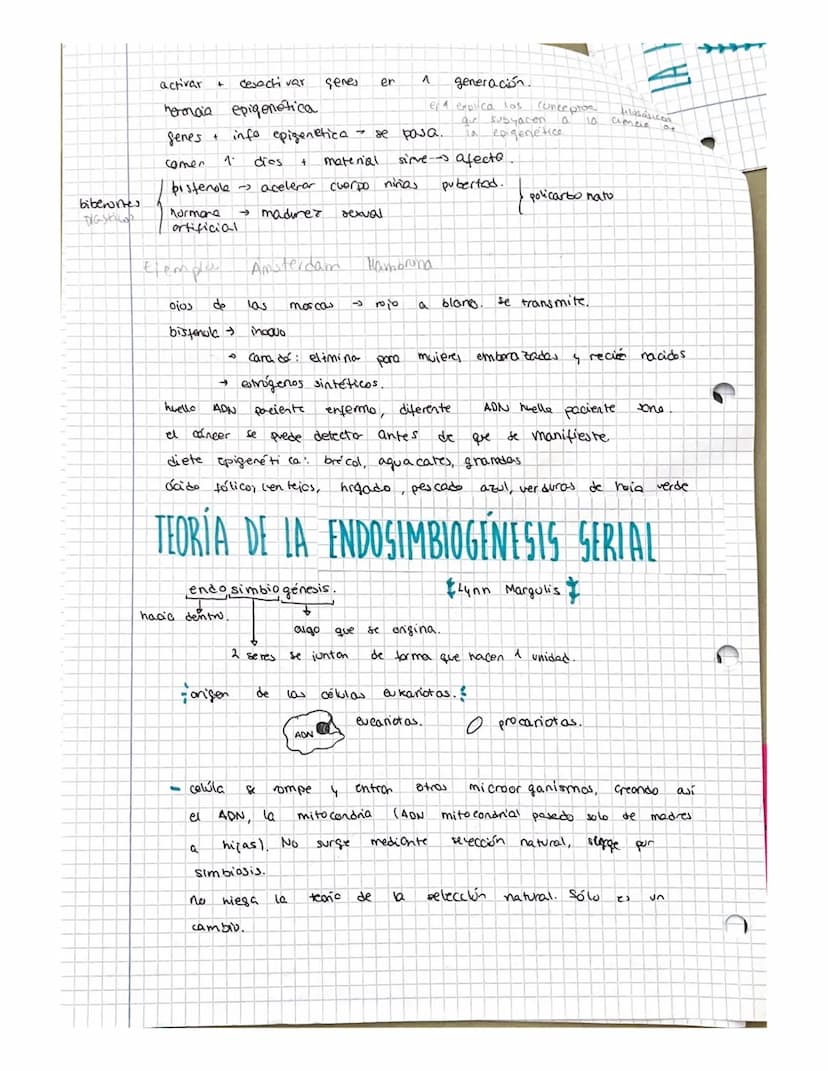 activar + desactivar genes en 1 generación.
herencia epigenética
ej 1 explica los conceptos filosóficos
que subyacen a la ciencia de
la epigenética
genes + info epigenetica → se pasa.
comen 1º dios + material sirve → afecto.
biberones
bisfenola → acelerar cuerpo niñas pubertad.
policarbonato
hormona → madurez sexual
artificial
Ejemplo Amsterdam Hambruna
ojos de las moscas → rojo a blanco. se transmite.
bisfenola → inocuo
→ Canadá: elimina para mujeres embarazadas y recién nacidos
→ estrógenos sintéticos.
huella ADN paciente enfermo, diferente ADN huella paciente sano.
el cáncer se puede detectar antes de que se manifieste
dieta epigenética: brécol, aguacates, granadas
ácido fólico, lentejas, hígado, pescado azul, verduras de hoja verde
TEORÍA DE LA ENDOSIMBIOGÉNESIS SERIAL
endosimbiogénesis.
Lynn Margulis
hacia dentro.
algo que se origina.
2 seres se juntan de forma que hacen 1 unidad.
origen de las células eukariotas.
ADN
eucariotas.
procariotas.
- celúla se rompe y entran otros microorganismos, creando así
el ADN, la mitocondria (ADN mitocondrial pasado solo de madres
a hijas). No surge mediante selección natural, surge por
simbiosis.
no niega la teoria de la selección natural. Sólo es un
cambio.